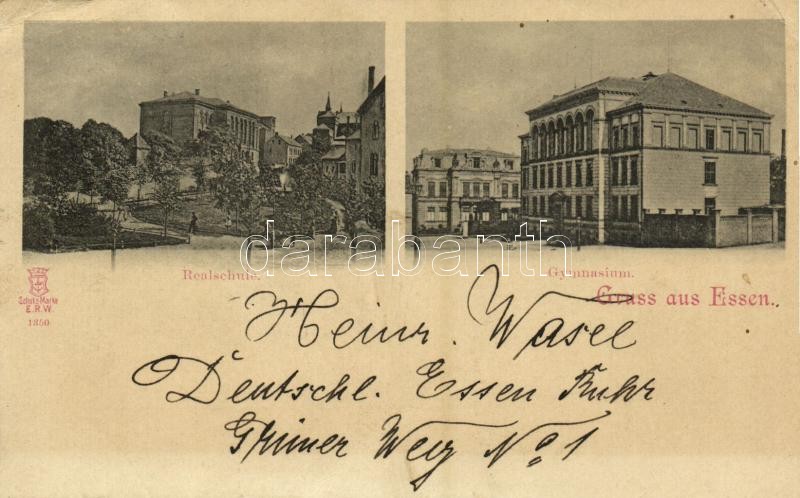 Realschule.
Gymnasium.
Gruss aus Essen.
Schutz-Marke
E.R.W.
1350
Heinr. Wasel
Deutschl. Essen Ruhr
Grüner Weg No 1
darabanth